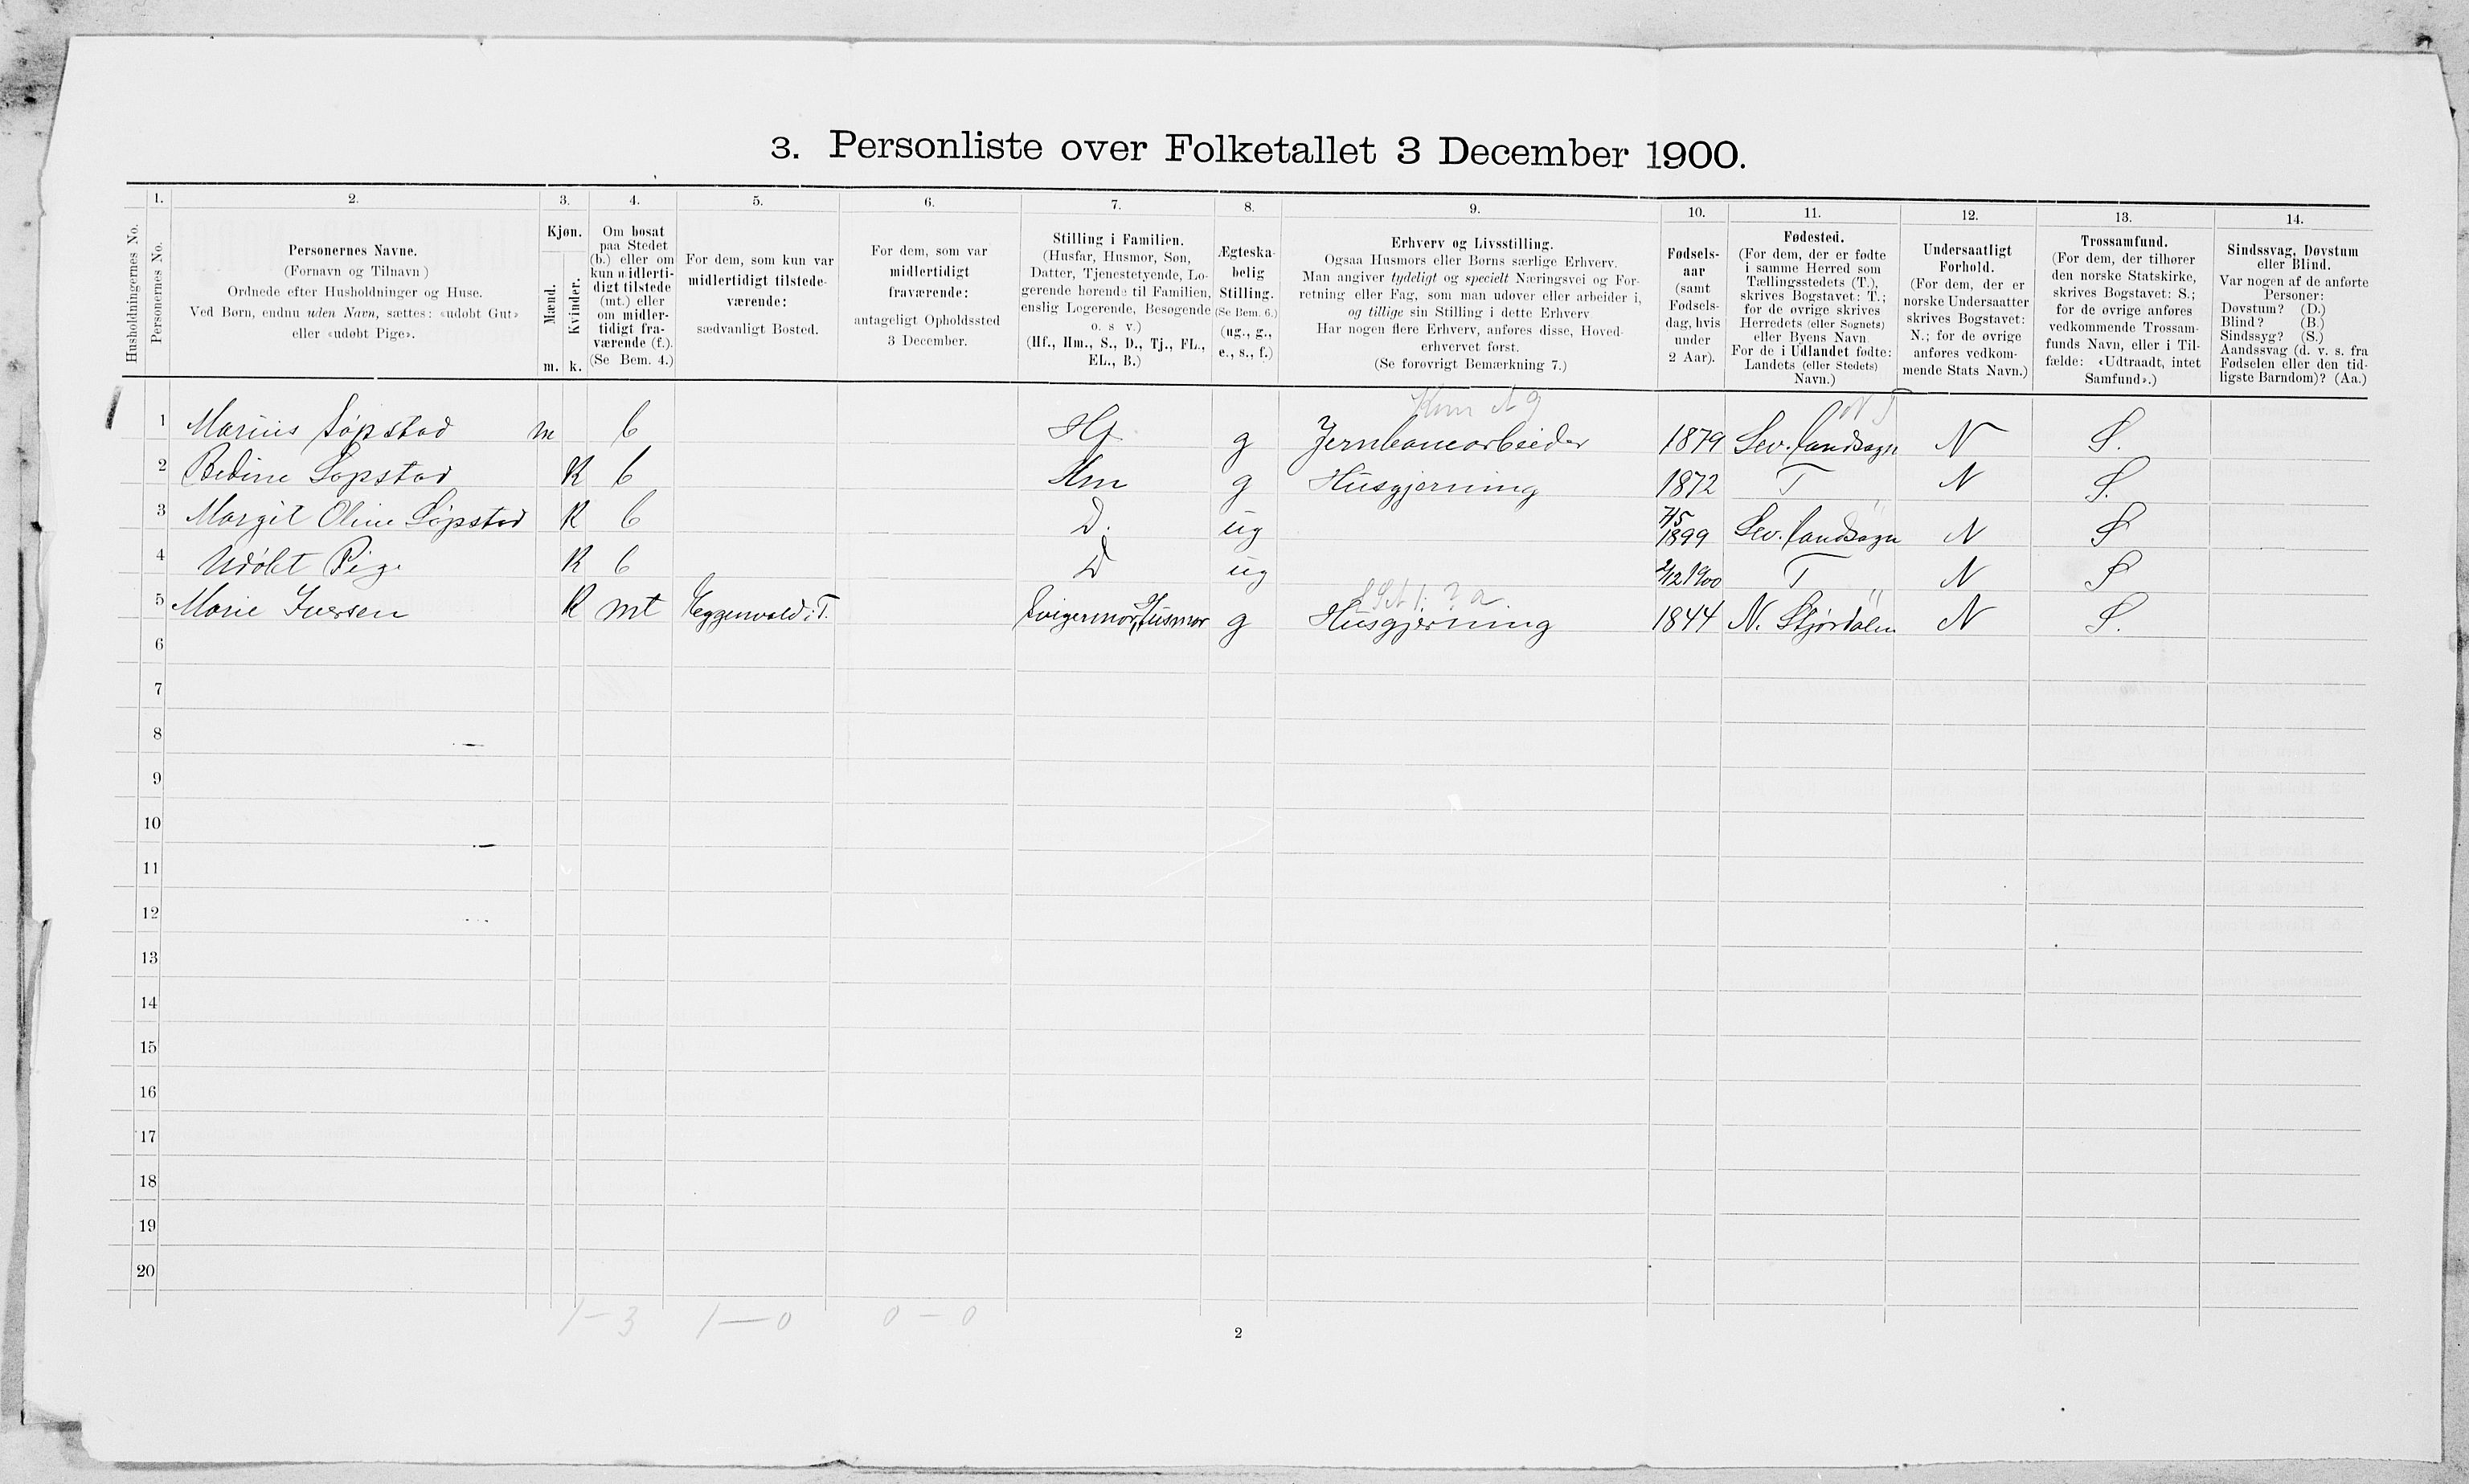 3. Personliste over Folketallet 3 December 1900.
Husholdningernes No.
1.
Personernes No.
2.
Personernes Navne.
(Fornavn og Tilnavn)
Ordnede efter Husholdninger og Huse.
Ved Børn, endnu uden Navn, sættes: «udøbt Gut»
eller «udøbt Pige».
3.
Kjøn.
Mænd.
Kvinder.
m. k.
4.
Om bosat
paa Stedet
(b.) eller om
kun midlerti-
digt tilstede
(mt.) eller
om midler-
tidigt fra-
værende (f.).
(Se Bem. 4.)
5.
For dem, som kun var
midlertidigt tilstede-
værende:
sædvanligt Bosted.
6.
For dem, som var
midlertidigt
fraværende:
antageligt Opholdssted
3 December.
7.
Stilling i Familien.
(Husfar, Husmor, Søn,
Datter, Tjenestetyende, Lo-
gerende hørende til Familien,
enslig Logerende, Besøgende
o. s v.)
(Hf., Hm., S., D., Tj., FL.,
EL., B.)
8.
Ægteska-
belig
Stilling.
(Se Bem. 6.)
(ug., g.,
e., s., f.)
9.
Erhverv og Livsstilling.
Ogsaa Husmors eller Børns særlige Erhverv.
Man angiver tydeligt og specielt Næringsvei og For-
retning eller Fag, som man udøver eller arbeider i,
og tillige sin Stilling i dette Erhverv
Har nogen flere Erhverv, anføres disse, Hoved-
erhvervet først.
(Se forøvrigt Bemærkning 7.)
10.
Fødsels-
aar
(samt
Fødsels-
dag, hvis
under
2 Aar).
11.
Fødested.
(For dem, der er fødte
i samme Herred som
Tællingsstedets (T.),
skrives Bogstavet: T.;
for de øvrige skrives
Herredets (eller Sognets)
eller Byens Navn
For de i Udlandet fødte:
Landets (eller Stedets)
Navn.)
12.
Undersaatligt
Forhold.
(For dem, der er
norske Undersaatter
skrives Bogstavet:
N.; for de øvrige
anføres vedkom-
mende Stats Navn.)
13.
Trossamfund.
(For dem, der tilhører
den norske Statskirke,
skrives Bogstavet: S.;
for de øvrige anføres
vedkommende Trossam-
funds Navn, eller i Til-
fælde: «Udtraadt, intet
Samfund».)
14.
Sindssvag, Døvstum
eller Blind.
Var nogen af de anførte
Personer:
Døvstum? (D.)
Blind? (B.)
Sindssyg? (S.)
Aandssvag (d. v. s. fra
Fødselen eller den tid-
ligste Barndom)? (Aa.)
1 Marius Søpstad m b Hf. g Jernbanearbeider 1879 Lev. landsogn N S.
2 Bedine Sopstad K b Hm g Husgjerning 1872 T N S.
3 Margit Oline Søpstad K b D. ug 7/5 1899 Lev. landsogn N S
4 Udøbt Pige K b D ug 2/12 1900 T N S
5 Marie Iversen K mt Eggenvold i T. Svigermor, Husmor g Husgjerning 1844 N. Stjørdalen N S.
6
7
8
9
10
11
12
13
14
15
16
17
18
19
20
1 – 3 1 — 0 0 – 0
2